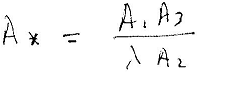 A* = A₁ A₃ / λ A₂